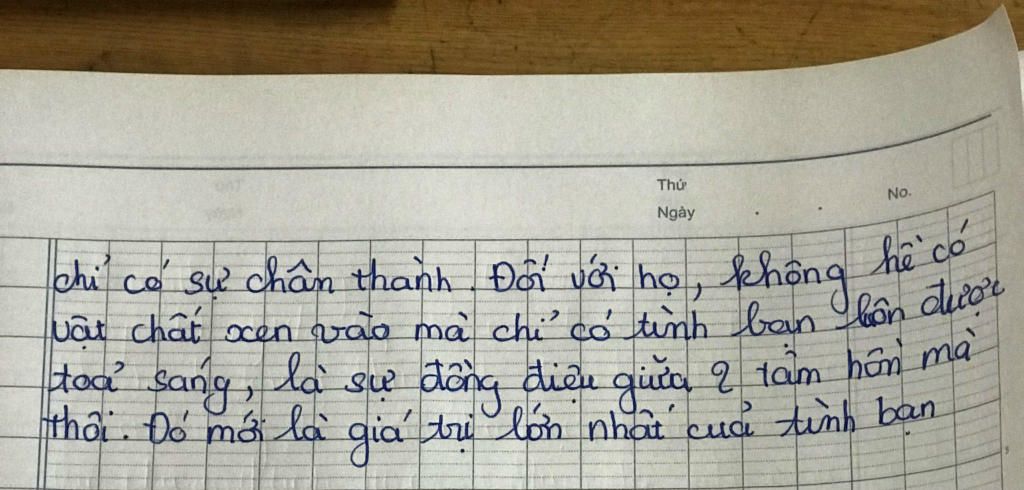 Thứ
Ngày
No.
chỉ có sự chân thành. Đối với họ, không hề có
vật chất xen vào mà chỉ có tình bạn luôn được
toả sáng, là sự đồng điệu giữa 2 tâm hồn mà
thôi. Đó mới là giá trị lớn nhất cuả tình bạn